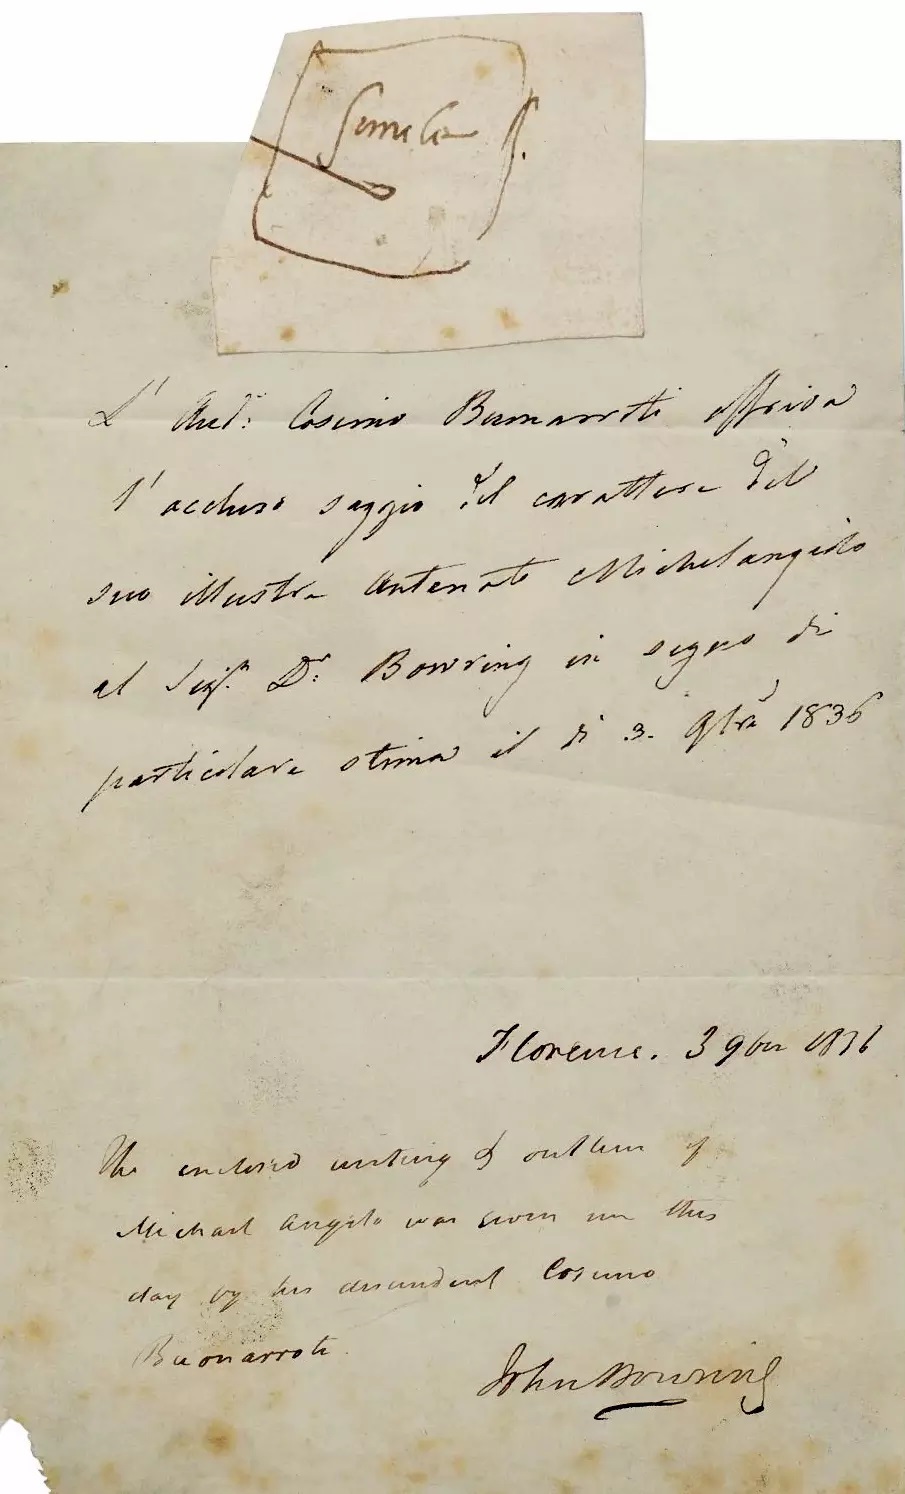 simile
L' Aud.r: Cosimo Buonarroti offriva
l' accluso saggio del carattere del
suo illustre Antenato Michelangiolo
al Sig.r D.r Bowring in segno di
particolare stima il dì 3. 9bre 1836
Florence. 3 9ber 1836
The enclosed writing & outline of
Michael Angelo was given me this
day by his descendent Cosimo
Buonarroti.
John Bowring